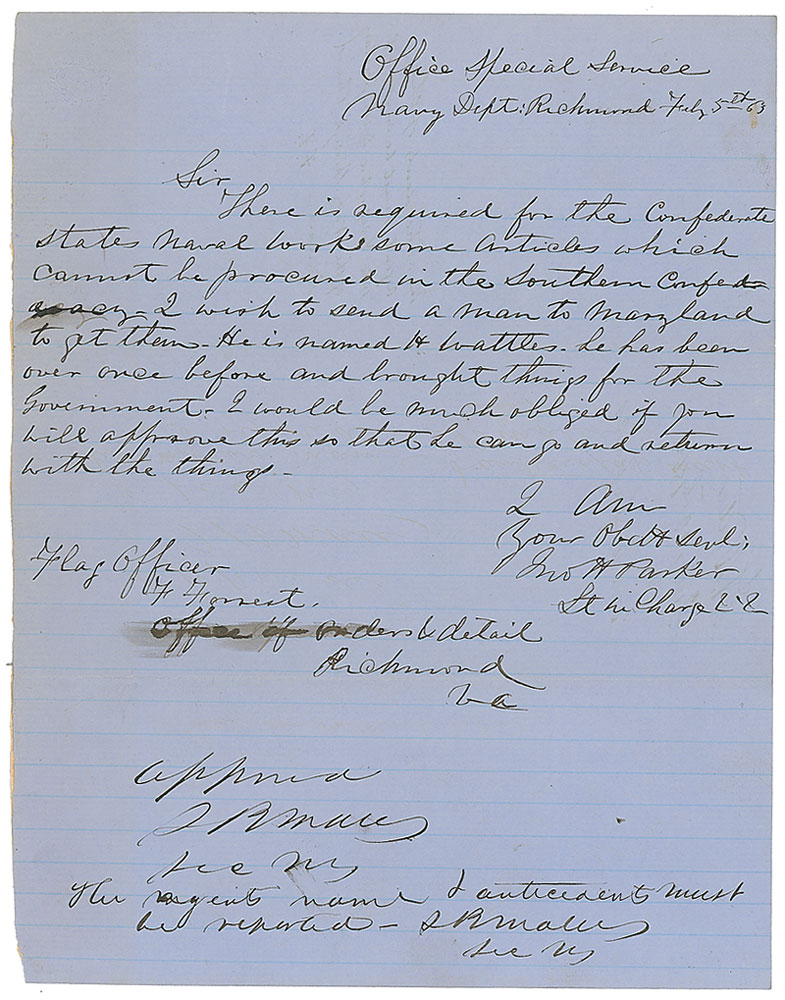 Office Special Service
Navy Dept: Richmond Feby 5th 63
Sir
There is required for the Confederate
states Naval Works some articles which
cannot be procured in the Southern Confed-
acy - I wish to send a man to Maryland
to get them - He is named H Wattles - he has been
over once before and brought things for the
Government - I would be much obliged if you
will approve this so that he can go and return
with the things -
I Am
Your Obdt Servt:
Jno H Parker
Lt in Charge
Flag Officer
F Forrest.
Office of orders & detail
Richmond
Va
Approved
S R Mallory
Sec Ny
The agents name & antecedents must
be reported - S R Mallory
Sec Ny